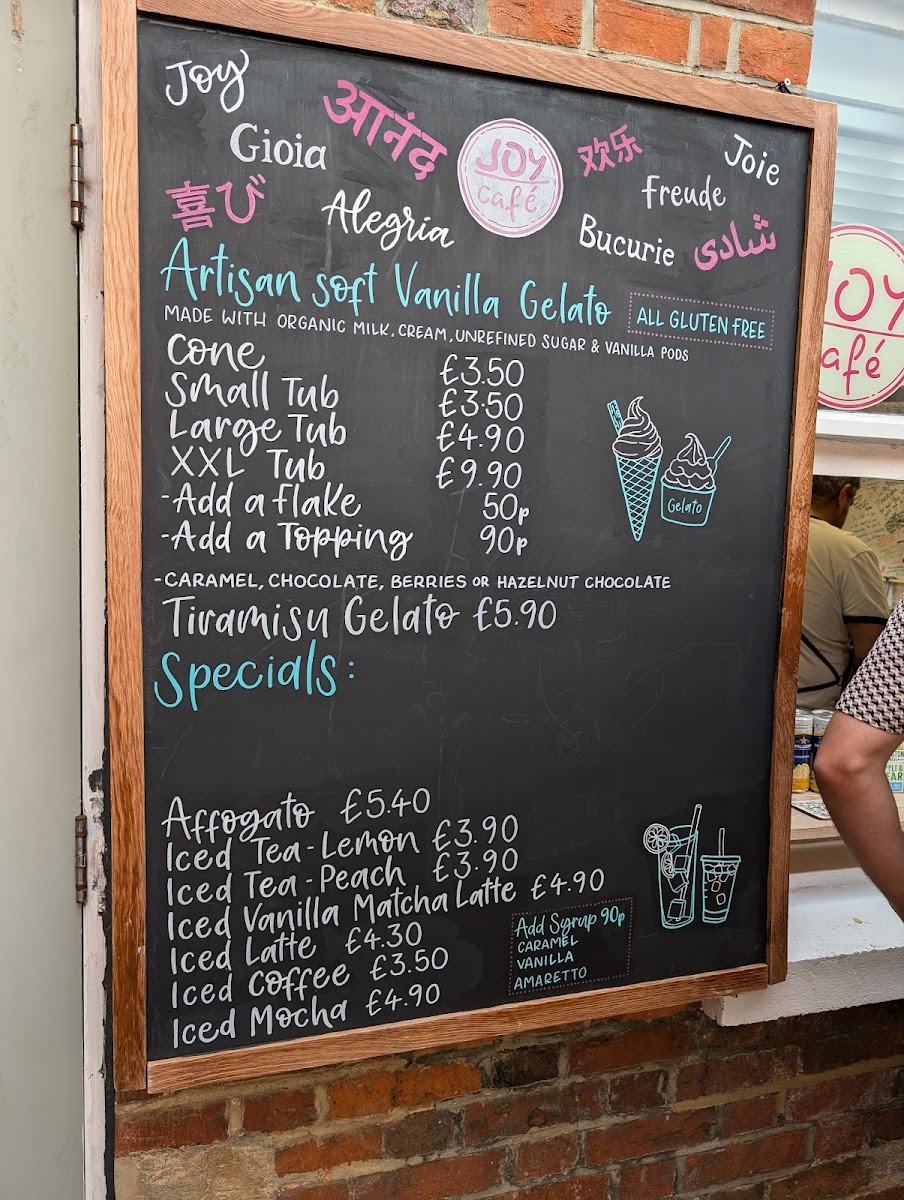 Joy
आनंद
Gioia
喜び
Alegria
JOY
café
欢乐
Joie
Freude
Bucurie
شادی
Artisan soft Vanilla Gelato
ALL GLUTEN FREE
MADE WITH ORGANIC MILK, CREAM, UNREFINED SUGAR & VANILLA PODS
Cone £3.50
Small Tub £3.50
Large Tub £4.90
XXL Tub £9.90
-Add a flake 50p
-Add a Topping 90p
-CARAMEL, CHOCOLATE, BERRIES OR HAZELNUT CHOCOLATE
Tiramisu Gelato £5.90
Gelato
Specials:
Affogato £5.40
Iced Tea-Lemon £3.90
Iced Tea-Peach £3.90
Iced Vanilla Matcha Latte £4.90
Iced Latte £4.30
Iced Coffee £3.50
Iced Mocha £4.90
Add Syrup 90p
CARAMEL
VANILLA
AMARETTO
JOY
afé